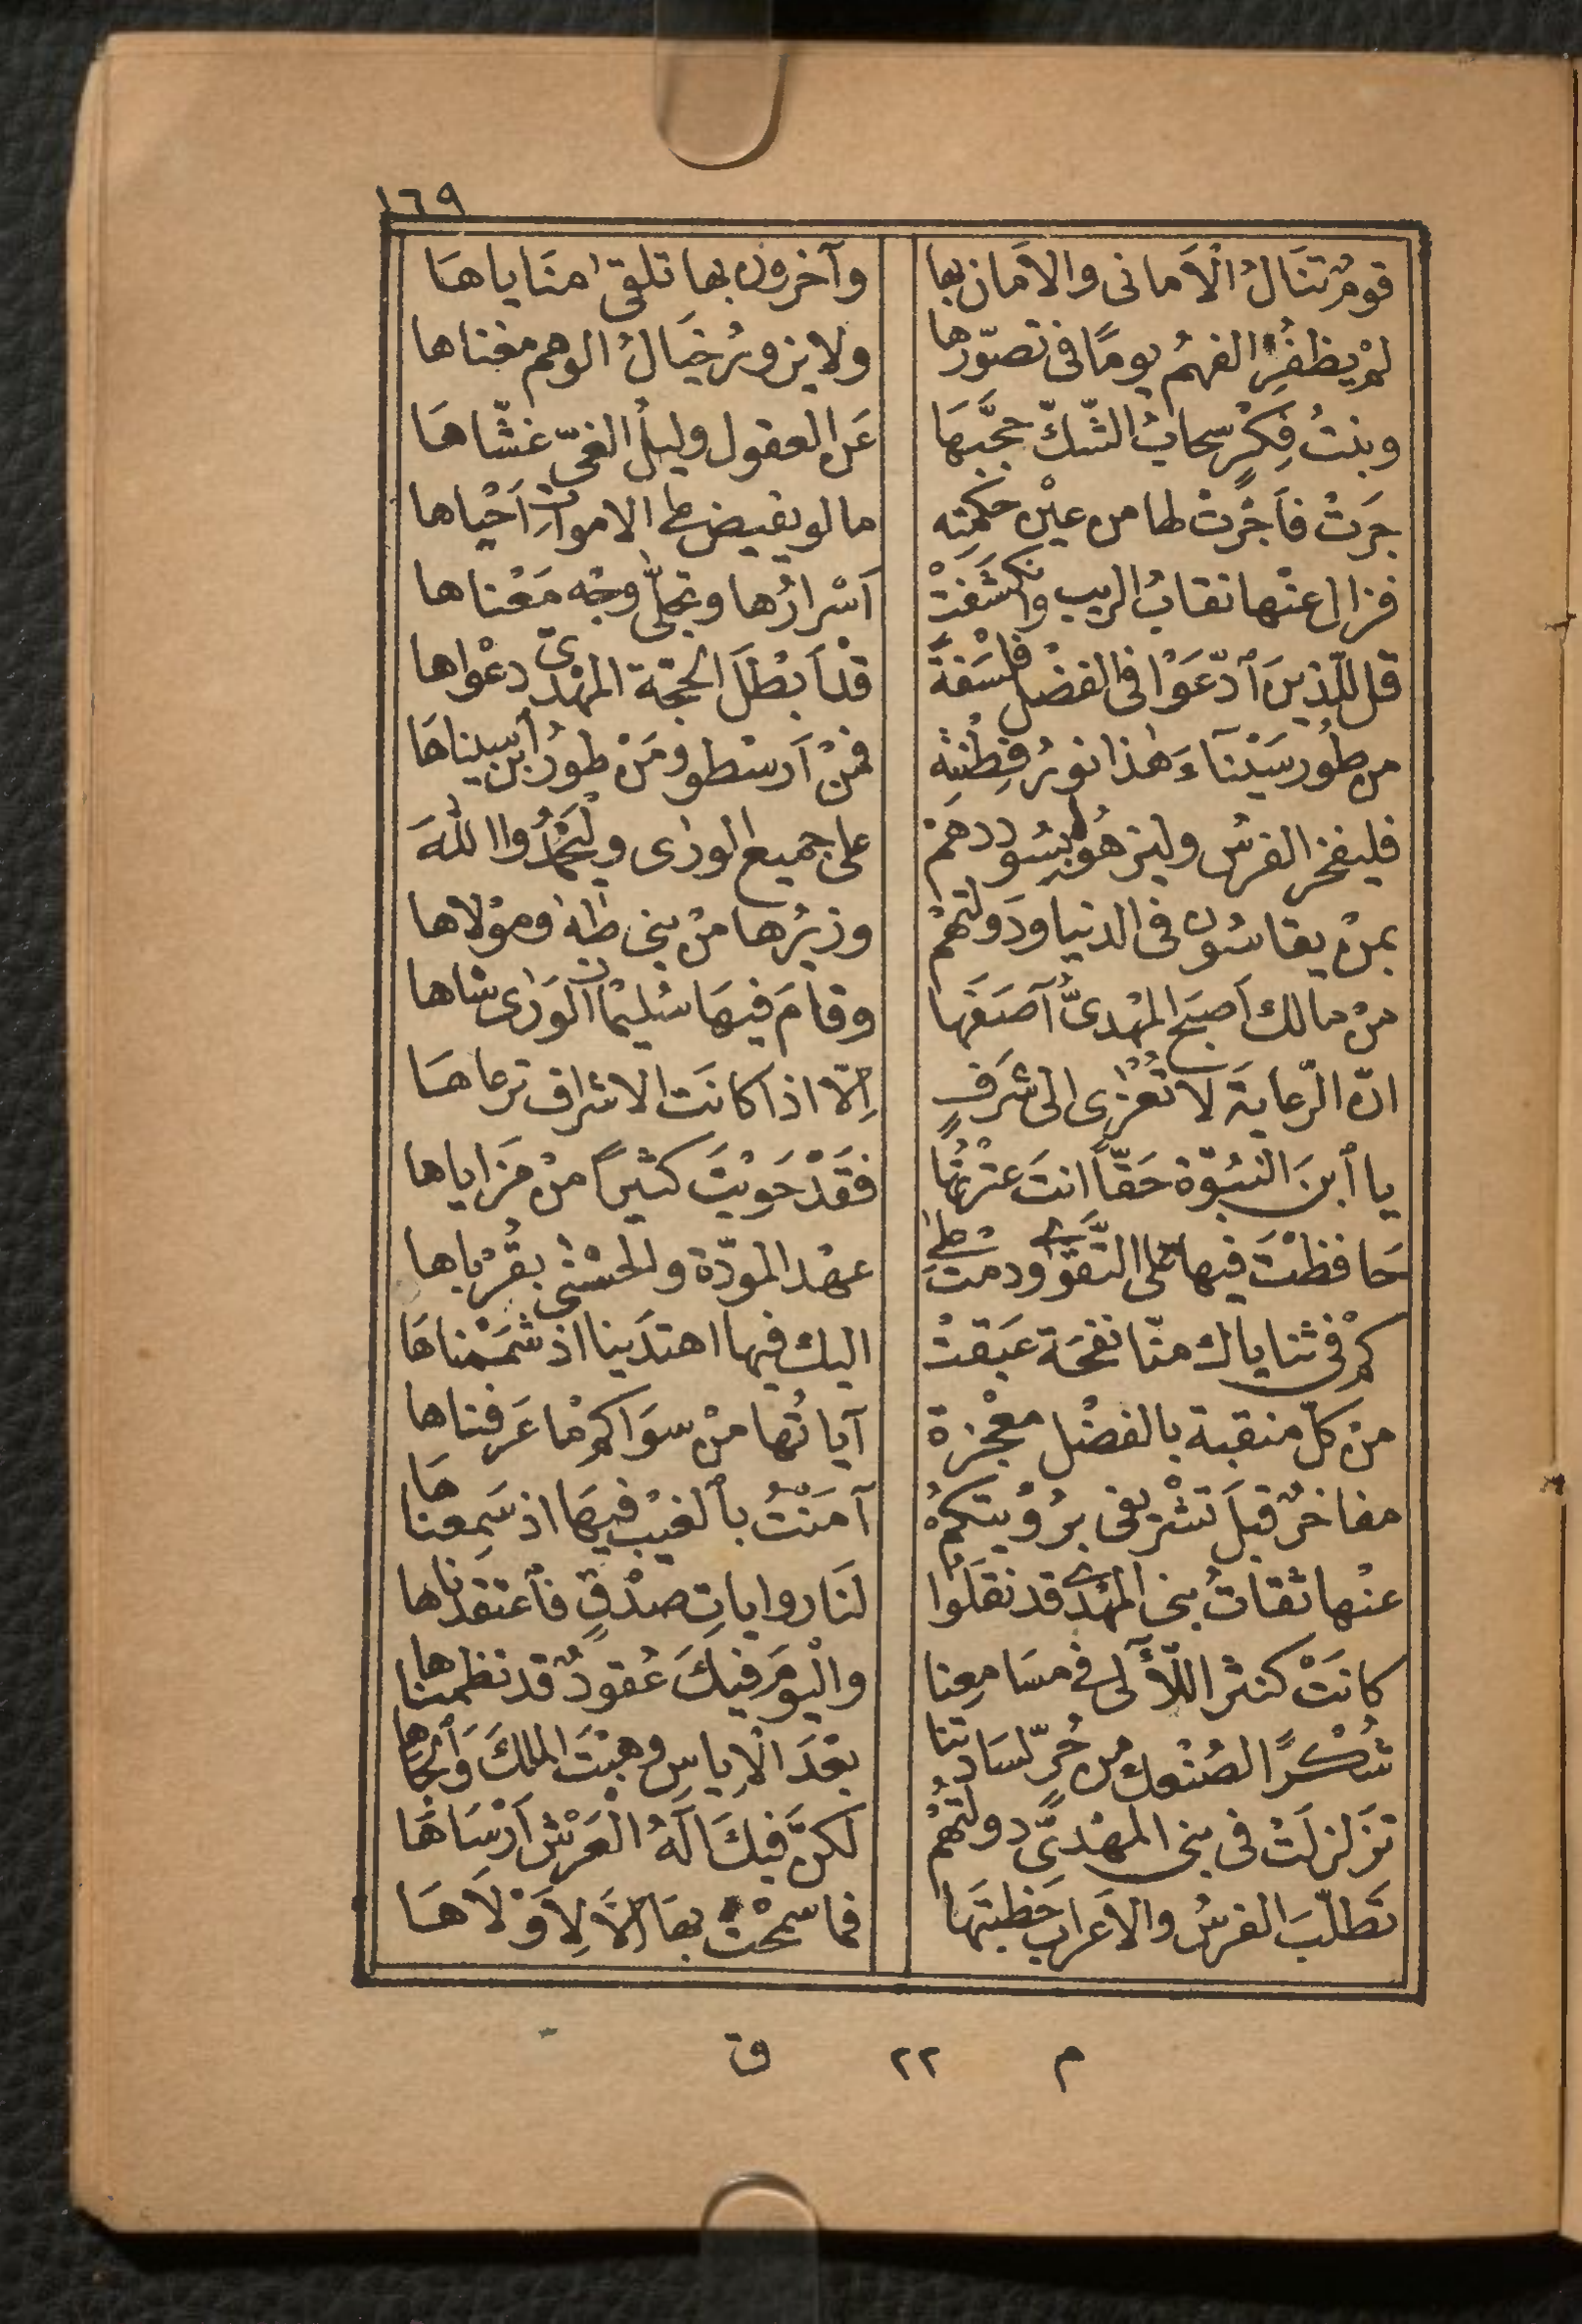 ١٦٩
قومٌ تنَالُ الْاَمانى والاَمان بها وآخرون بها تلقىٰ منَاياهَا
لمْ يظفُرِ الفهمُ يومًا فى تصوّرها ولا يزورُ خيَالُ الوهم مغناها
وبنتُ فِكْرٍ سحابُ الشّكّ حجَّبهَا عَن العقول وليلُ الغىّ غشّاهَا
جرَتْ فاَجْرت لها من عيْن حكمته ما لو يفيض على الامواتِ اَحْياها
فزال عنْها نقابُ الريب وانكشَفتْ اَسْرارُها وتجلّىٰ وجْه مَعْناها
قل للّذينَ ٱدّعَوْا فى الفضْل فلْسَفةً قدْ اَبطَلَ الحجّة المهْدىّ دعْواها
من طُور سَيْنَآءَ هٰذا نورُ فِطْنتِه فمنْ اَرسْطو ومَنْ طورُ ٱبن سيناهَا
فليفخر الفرسُ وليزهُوا بسُوددهَم على جميع الورٰى وليَحْمدُوا اللّٰهَ
بمنْ يقاسُون فى الدنيا ودَولتهُمْ وزيرُها منْ بنى طٰهٰ ومَوْلاها
منْ مالك اَصبَح المهْدىُّ آصَفَها وقامَ فيهَا سُليْمٰانُ الوَرٰى شاها
انّ الرّعايَةَ لا تُعْزٰى الى شَرَفٍ اِلّا اذا كانَت الاشراف ترعاهَا
يا ٱبنَ النبُوّة حَقّاً انتَ عتْرتُها فقَدْ حَويْتَ كثيرًا منْ مَزاياها
حَافظْتَ فيها على التّقوٰى ودمْتَ علىٰ عهْد المودّة والحسْنٰى بقُرْباها
كمْ فى ثنايا لك منّا نفحَة عبَقتْ اليك فيها اهتدَينا اذ شمَمْناهَا
منْ كلّ منقبة بالفضْل معْجزة آياتُها منْ سوَاكمْ مٰا عَرفناها
مفاخرٌ قبلَ تشْريفى برُؤيتكمُ آمَنْتُ بٱلغيْب فيهَا اذ سَمِعنا هَا
عنْها ثقاتُ بنى المهْدىّ قد نقَلَوا لنَا رواياتِ صدْقٍ فٱعتقدناها
كانَتْ كنثر اللّآلى فى مسَامِعِنا والْيومَ فيكَ عُقودٌ قد نظمناها
شُكْرًا لصُنْعك من حُرٍّ لسَادتنا بعْدَ الْاِياسِ وهبْتَ الملكَ وَٱلجَاها
تزَلزلَتْ فى بنى المهْدىِّ دولتُهُمْ لكنَّ فيكَ اَلهُ الْعَرْش اَرْسَاهَا
تَطلّبَ الفرسُ والاَعراب خطْبتَهَا فما سمحْتَ بهَا اِلاَّ لِاَوْلَاهَا
م ٢٢ ق